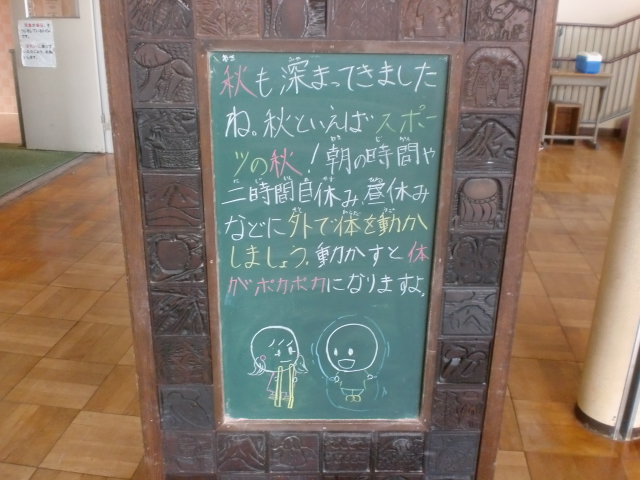 秋も深まってきました
ね。秋といえばスポー
ツの秋！朝の時間や
二時間目休み、昼休み
などに外で体を動か
しましょう。動かすと体
がポカポカになりますよ。